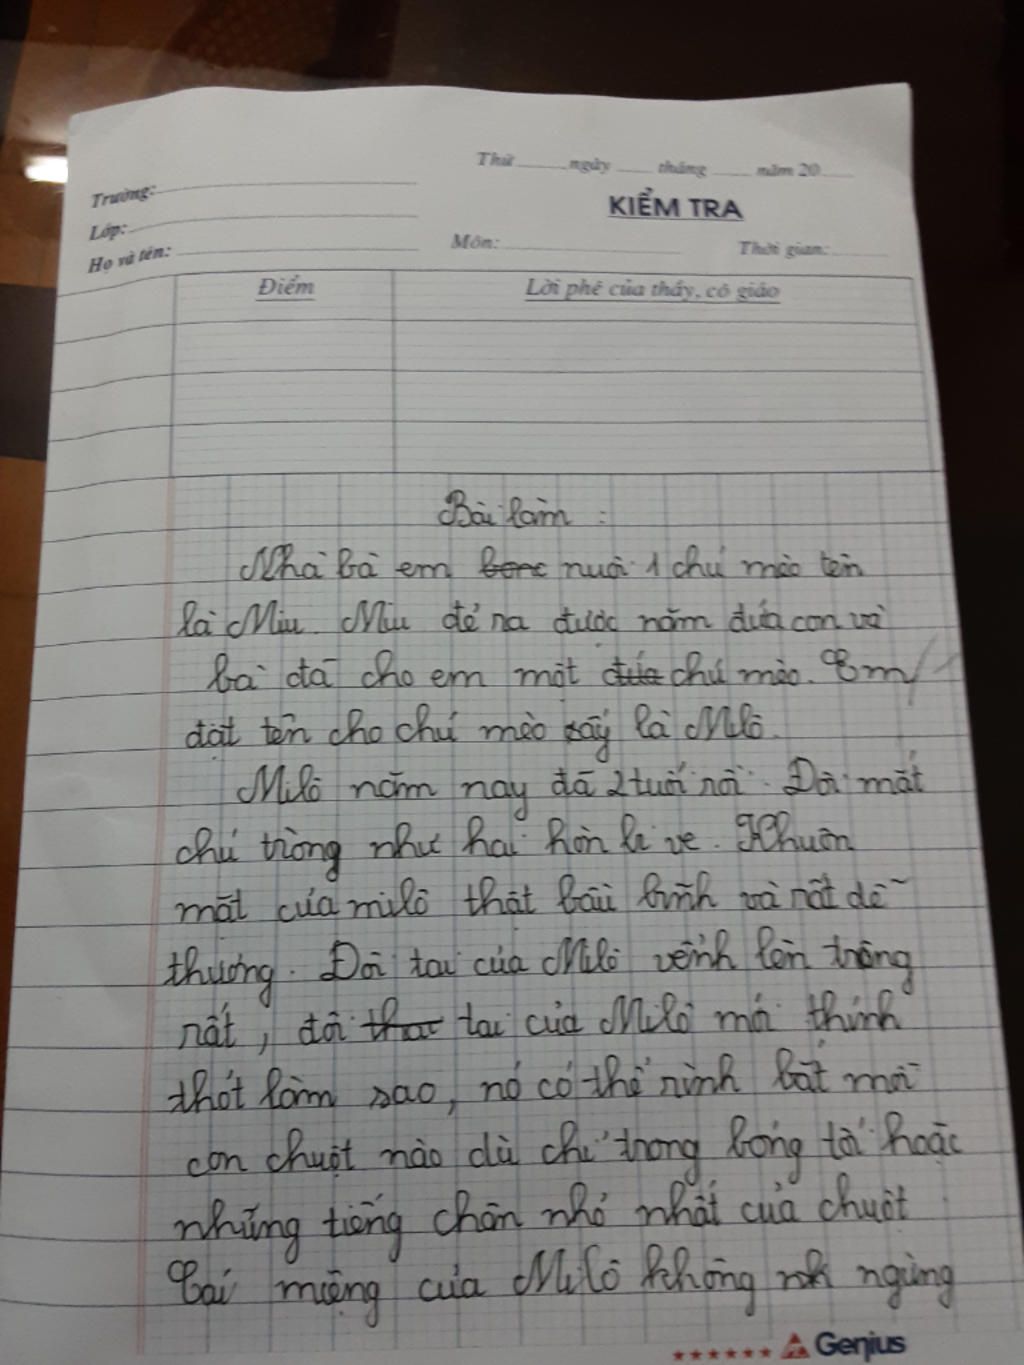 Thứ ngày tháng năm 20
Trường:
KIỂM TRA
Lớp:
Môn: Thời gian:
Họ và tên:
Điểm Lời phê của thầy, cô giáo
Bài làm :
Nhà bà em nuôi 1 chú mèo tên
là Miu. Miu đẻ ra được năm đứa con và
bà đã cho em một đứa chú mèo. Em
đặt tên cho chú mèo ấy là Milô.
Milô năm nay đã 2 tuổi rồi. Đôi mắt
chú tròng như hai hòn bi ve. Khuôn
mặt của milô thật bầu bĩnh và rất dễ
thương. Đôi tai của Milô vểnh lên trông
rất, đôi tai của Milô mới thính
thót làm sao, nó có thể rình bắt mọi
con chuột nào dù chỉ trong bóng tối hoặc
những tiếng chân nhỏ nhất của chuột.
Cái miệng của Milô không ngừng
Genius